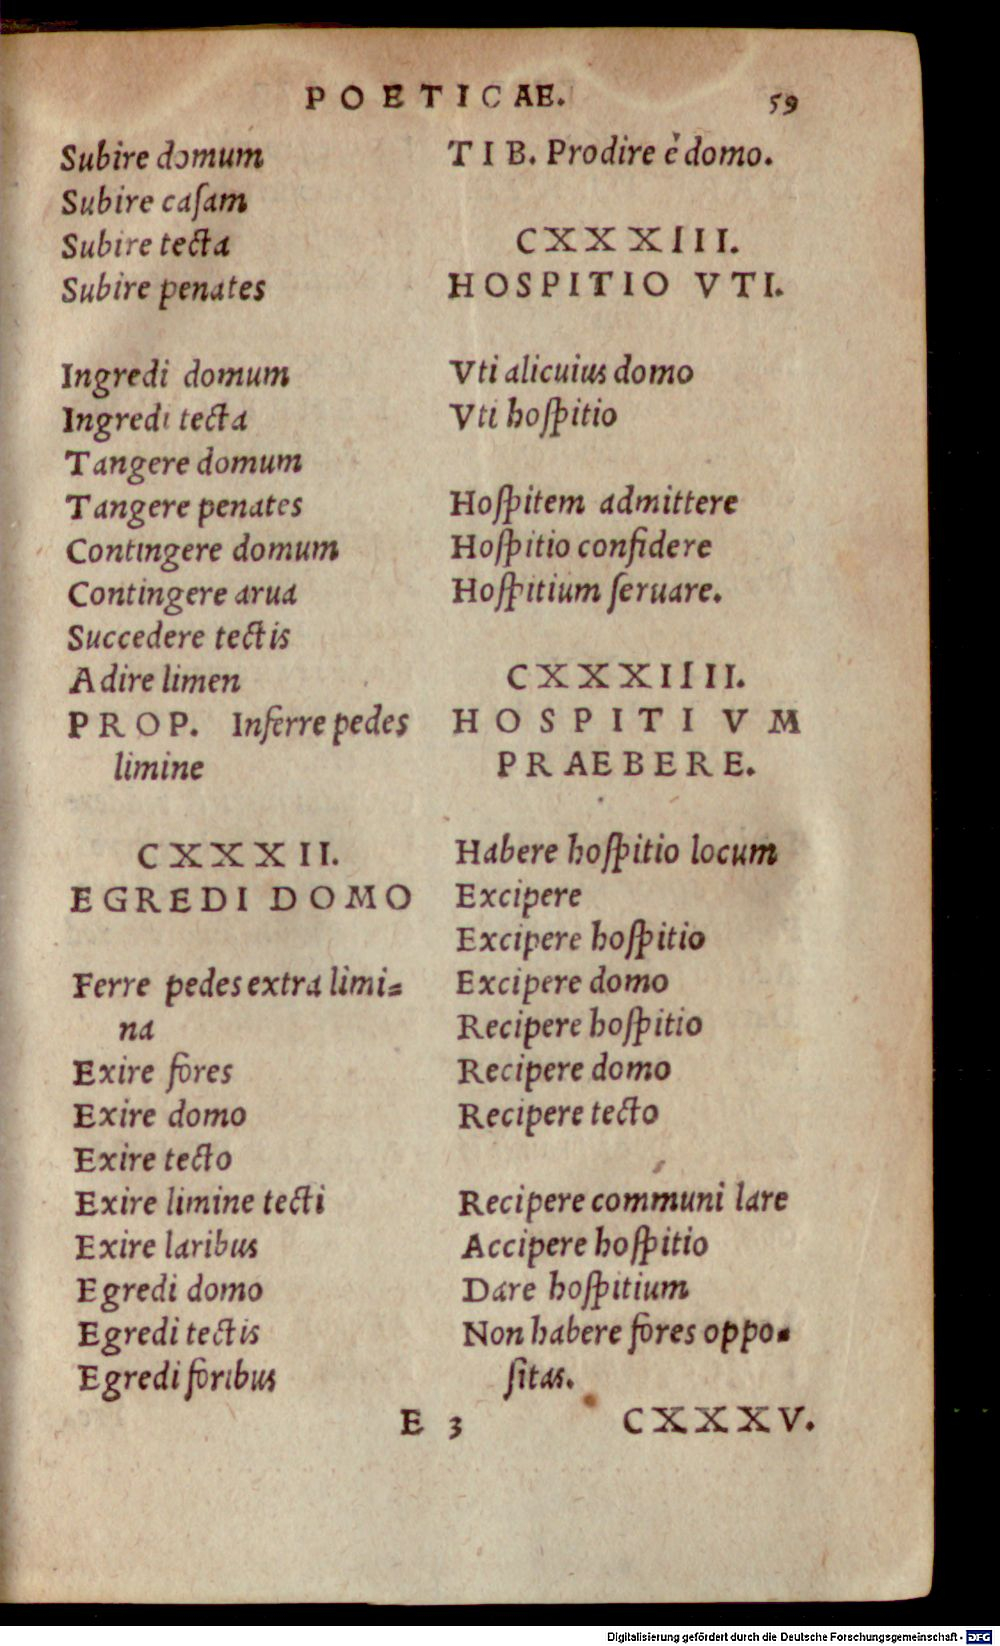 POETICAE.
59
Subire domum
Subire caſam
Subire tecta
Subire penates
Ingredi domum
Ingredi tecta
Tangere domum
Tangere penates
Contingere domum
Contingere arua
Succedere tectis
Adire limen
PROP. Inferre pedes
limine
CXXXII.
EGREDI DOMO
Ferre pedes extra limi=
na
Exire fores
Exire domo
Exire tecto
Exire limine tecti
Exire laribus
Egredi domo
Egredi tectis
Egredi foribus
TIB. Prodire è domo.
CXXXIII.
HOSPITIO VTI.
Vti alicuius domo
Vti hoſpitio
Hoſpitem admittere
Hoſpitio confidere
Hoſpitium ſeruare.
CXXXIIII.
HOSPITIVM
PRAEBERE.
Habere hoſpitio locum
Excipere
Excipere hoſpitio
Excipere domo
Recipere hoſpitio
Recipere domo
Recipere tecto
Recipere communi lare
Accipere hoſpitio
Dare hoſpitium
Non habere fores oppo=
ſitas.
E 3
CXXXV.
Digitalisierung gefördert durch die Deutsche Forschungsgemeinschaft - DFG